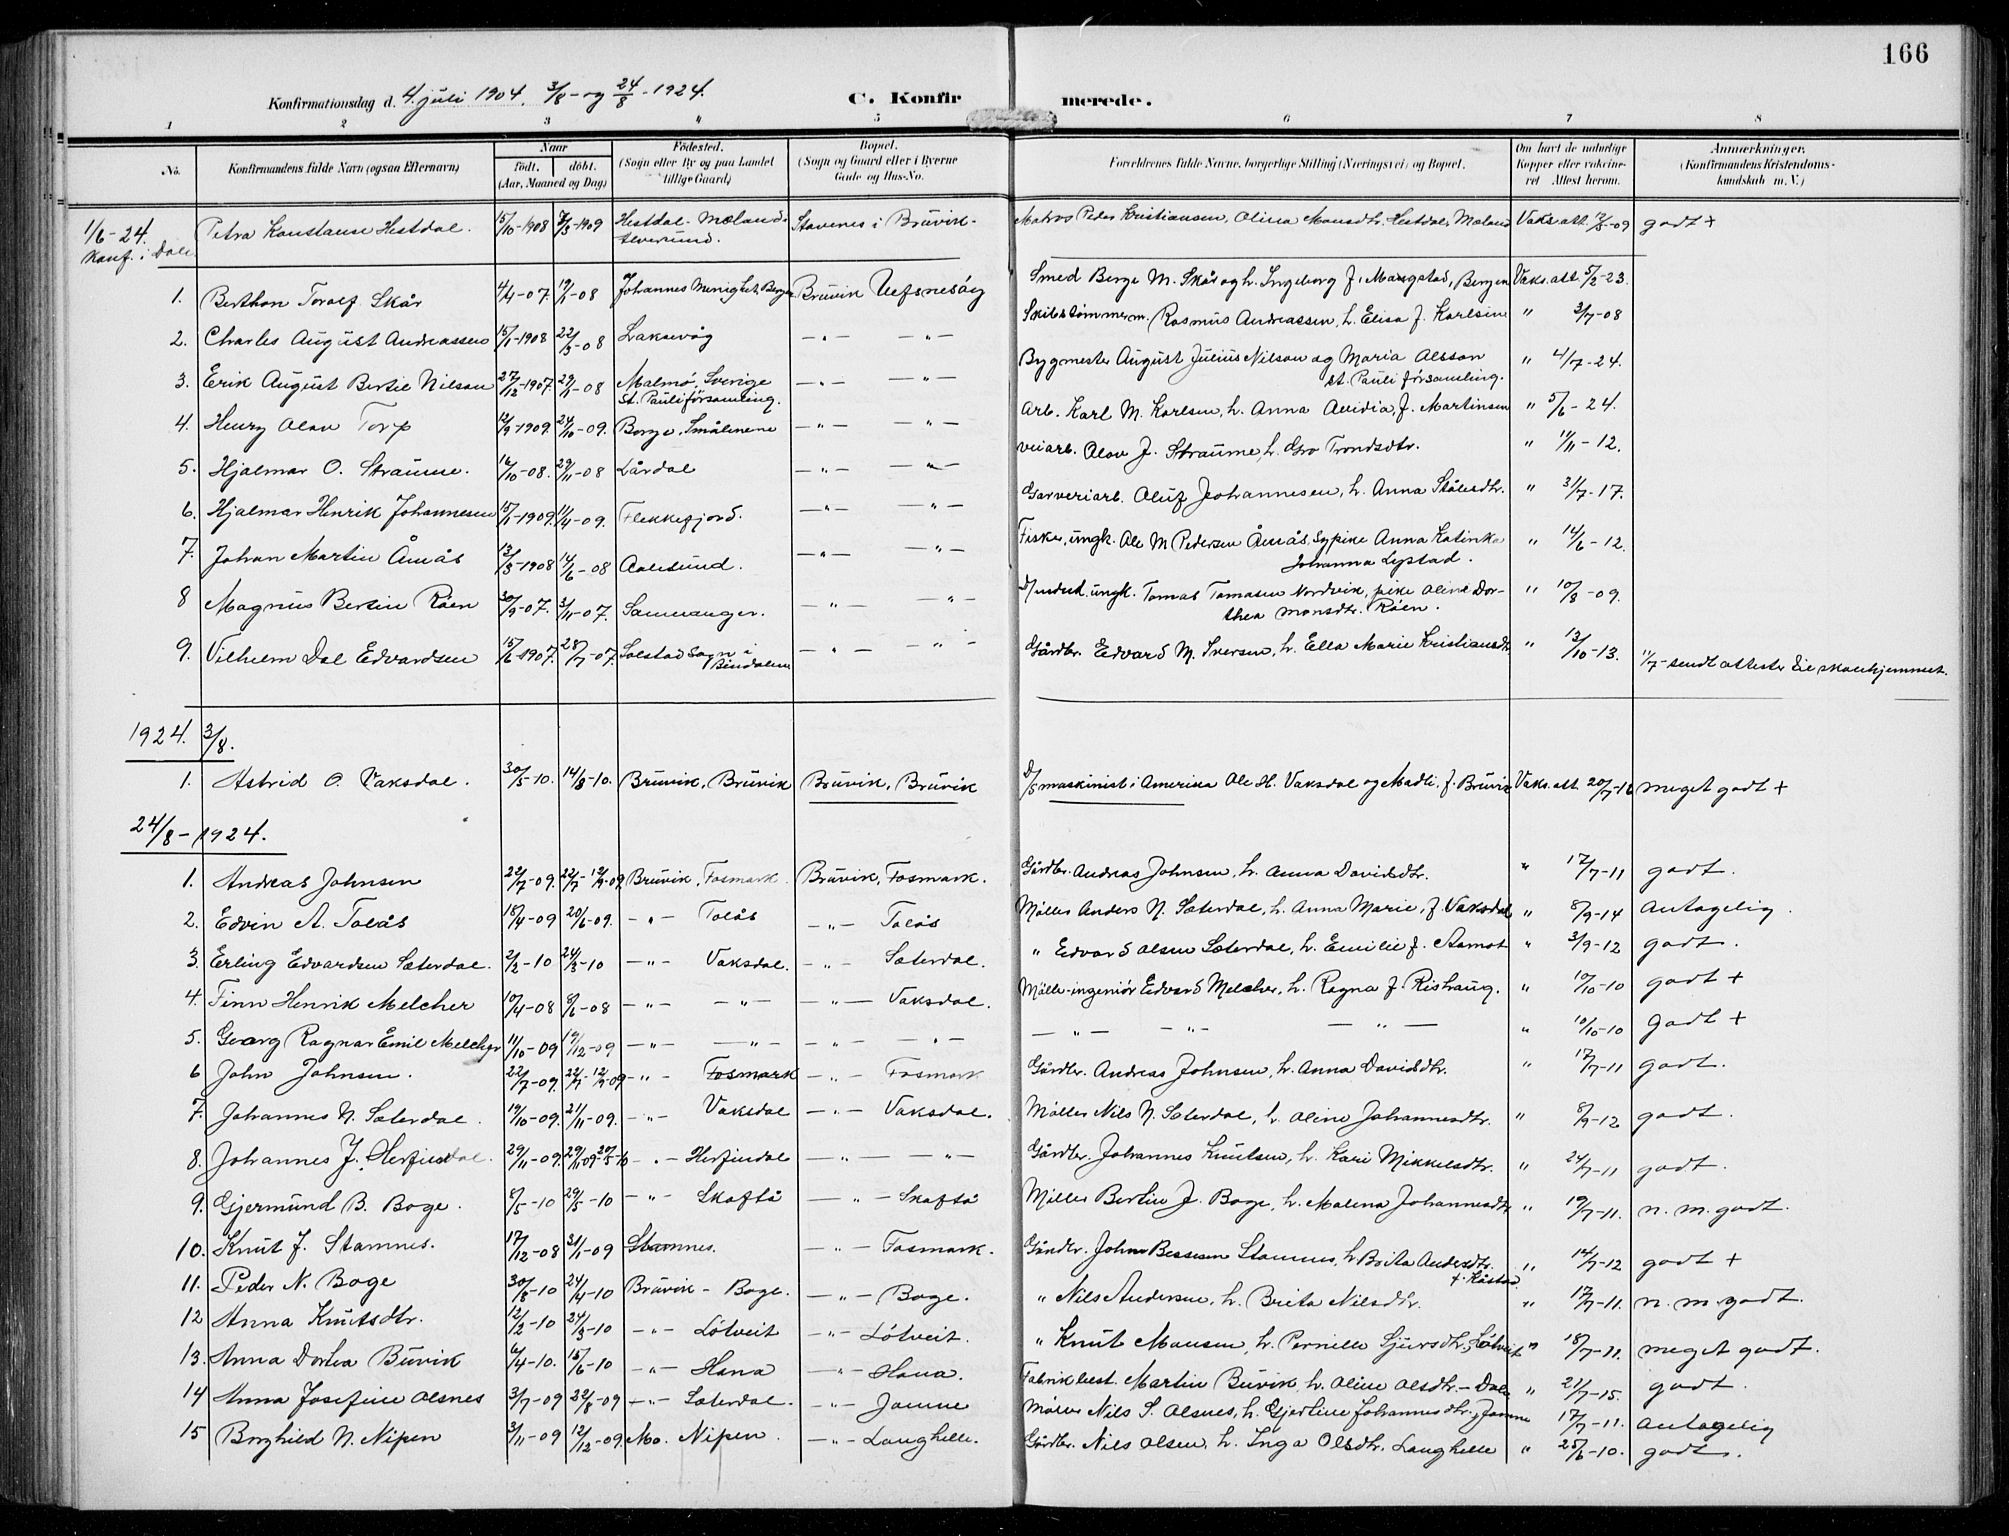 166
Konfirmationsdag d. 4. juli 1904. 3/8 - og 24/8 - 1924.
C. Konfirmerede.
1 2 3 " 5 6 7 8
No. Konfirmandens fulde Navn (ogsaa Efternavn) Naar födt. döbt. (Aar, Maaned og Dag) Födested. (Sogn eller By og paa Landet tillige Gaard) Bopæl. (Sogn og Gaard eller i Byerne Gade og Hus-No. Forældrenes fulde Navne, borgerlige Stilling (Næringsvei) og Bopæl. Om havt de naturlige Kopper eller vaksineret Attest herom. Anmærkninger. (Konfirmandens Kristendomskundskab m. V.)
1/6-24. Konf. i Dale Petra Konstanse Hestdal. 15/10-1908 7/3-1909 Hestdal - Mæland - Alversund. Stavenes i Bruvik - Matros Peder Kristiansen, Olina Monsdtr. Hestdal, Mæland Vaks. att. -09 godt +
1. Berthon Toralf Skår 4/4-07. 19/1-08 Johannes Menighet, Bergen Bruvik Ulfsnesöy Smed Berge M. Skår og h. Ingeborg f. Mangstad, Bergen Vaks. att. 5/2-23.
2. Charles August Andreassen 15/1-1908 22/3-08 Laksevåg -"- -"- Skibstømmerm. Rasmus Andreassen, h. Elisa f. Karlsen " 3/7-08
3. Erik August Bertil Nilson 27/12-1907. 29/1-08 Malmö, Sverige St. Pauli församling. -"- -"- Bygmester August Julius Nilson og Maria Olsson St. Pauli församling. " 4/7-24.
4. Henry Olav Torp 12/9-1909. 24/10-09. Borge, Smålenene -"- -"- Arb. Karl M. Karlsen, h. Anna Avidia, f. Martinsen " 5/6-24.
5. Hjalmar O. Straume. 16/10-08. 29/11-08 Lårdal -"- -"- veiarb. Olav J. Straume, h. Gro Trondsdtr. " 11/11-12.
6. Hjalmar Henrik Johannesen 15/1-1909. 11/4-09. Flekkefjord. -"- -"- Garveriarb. Oluf Johannesen, h. Anna Ståledtr. " 31/7-17.
7. Johan Martin Åmås 13/3-1908 14/6-08 Aalesund. -"- -"- Fisker, ungk. Ole M Pedersen Åmås, sypike Anna Katinka Johanna Lystad. " 14/6-12.
8 Magnus Bertin Röen 30/9-07. 3/11-07. Samnanger. -"- -"- ungk. Tomas Tomasen Nordvik, pike Oline Dorthea Monsdtr. Röen. " 10/8-09.
9. Vilhelm Dal Edvardsen 15/6-1907. 28/7-07. Solstad sogn i Bindalen -"- -"- Gårdbr. Edvard M. Iversen, h. Ella Marie Kristiansdtr " 13/10-13. 11/7-sendt attester til skolehjemmet.
1924. 3/8.
1. Astrid O. Vaksdal. 30/5-10. 14/8-10. Bruvik, Bruvik Bruvik, Bruvik D/S maskinist i Amerika Ole H. Vaksdal og Madli, f. Bruvik Vaks. att. 20/7- meget godt +
24/8-1924.
1. Andreas Johnsen 22/7-09. 22/7- 12/9-09 Bruvik, Fosmark. Bruvik, Fosmark. Gårdbr. Andreas Johnsen, h. Anna Davidsdtr. " 17/7-11 godt.
2. Edvin A. Tolås 18/4-09 20/6-09. -"- Tolås -"- Tolås Møller Anders N. Sæterdal, h. Anna Marie, f. Vaksdal " 8/9-14 Antagelig.
3. Erling Edvardsen Sæterdal. 2/2-10 24/3-10 -"- Vaksdal. -"- Sæterdal. " Edvard Olsen Sæterdal, h. Emilie f. Aamot " 3/9-12 godt.
4. Finn Henrik Melcher 10/4-08 8/6-08 -"- -"- -"- Vaksdal. Mølle-ingeniør Edvard Melcher, h. Ragna f. Ristaug. " 10/10-10 godt +
5. Georg Ragnar Emil Melcher 11/10-09 19/12-09 -"- -"- -"- -"- -"- -"- -"- " 10/10-10 godt +
6 John Johnsen. 22/7-09. 22/7- 12/9-09 -"- Fosmark -"- Fosmark Gårdbr. Andreas Johnsen, h. Anna Davidsdtr. " 17/7-11 godt.
7. Johannes N. Sæterdal. 19/10-09. 21/11-09. -"- Vaksdal -"- Vaksdal. Møller Nils N. Sæterdal, h. Oline Johannesdtr. " 8/9-12 godt.
8. Johannes J. Herfindal. 29/11-09. 29/11-09 20/5-10 -"- Herfindal -"- -"- Gårdbr. Johannes Knutsen, h. Kari Mikkelsdtr. " 24/7-11 godt.
9. Gjermund B. Boge. 8/5-10 29/5-10 -"- Skaftå -"- Skaftå Møller Bertin J. Boge, h. Malena Johannesdtr " 19/7-11. n. m. godt.
10. Knut J. Stamnes. 17/12-08 31/1-09 Stamnes. -"- Fosmark. Gårdbr. Johan Stamnes, h. Brita Andersdtr. " 14/7-12 godt +
11. Peder N. Boge 30/3-10 24/4-10 Bruvik - Boge. -"- Boge. " Nils Andersen, h. Brita Nilsdtr. " 17/7-11. n. m. godt.
12 Anna Knutsdtr. 12/2-10 24/3-10 -"- Lötveit -"- Lötveit. " Knut Monsen, h. Pernille Sjursdtr, Lötveit " 18/7-11. meget godt.
13. Anna Dortea Buvik 6/4-10. 15/6-10 -"- Hana -"- Hana. Fabrikbest. Martin Buvik, h. Oline Olsdtr. - Dale " 21/7-15. godt.
14 Anna Josefine Olsnes 3/7-09 22/8-09 -"- Sæterdal. -"- Jamne Møller Nils S. Olsnes, h. Gjertine Johannesdtr., Jamne 17/7-11. Antagelig
15 Borghild N. Nipen 3/11-09 12/12-09. Mo. Nipen. -"- Langhelle. Gårdbr. Nils Olsen, h. Inga Olsdtr. Langhelle " 25/6-10. godt.